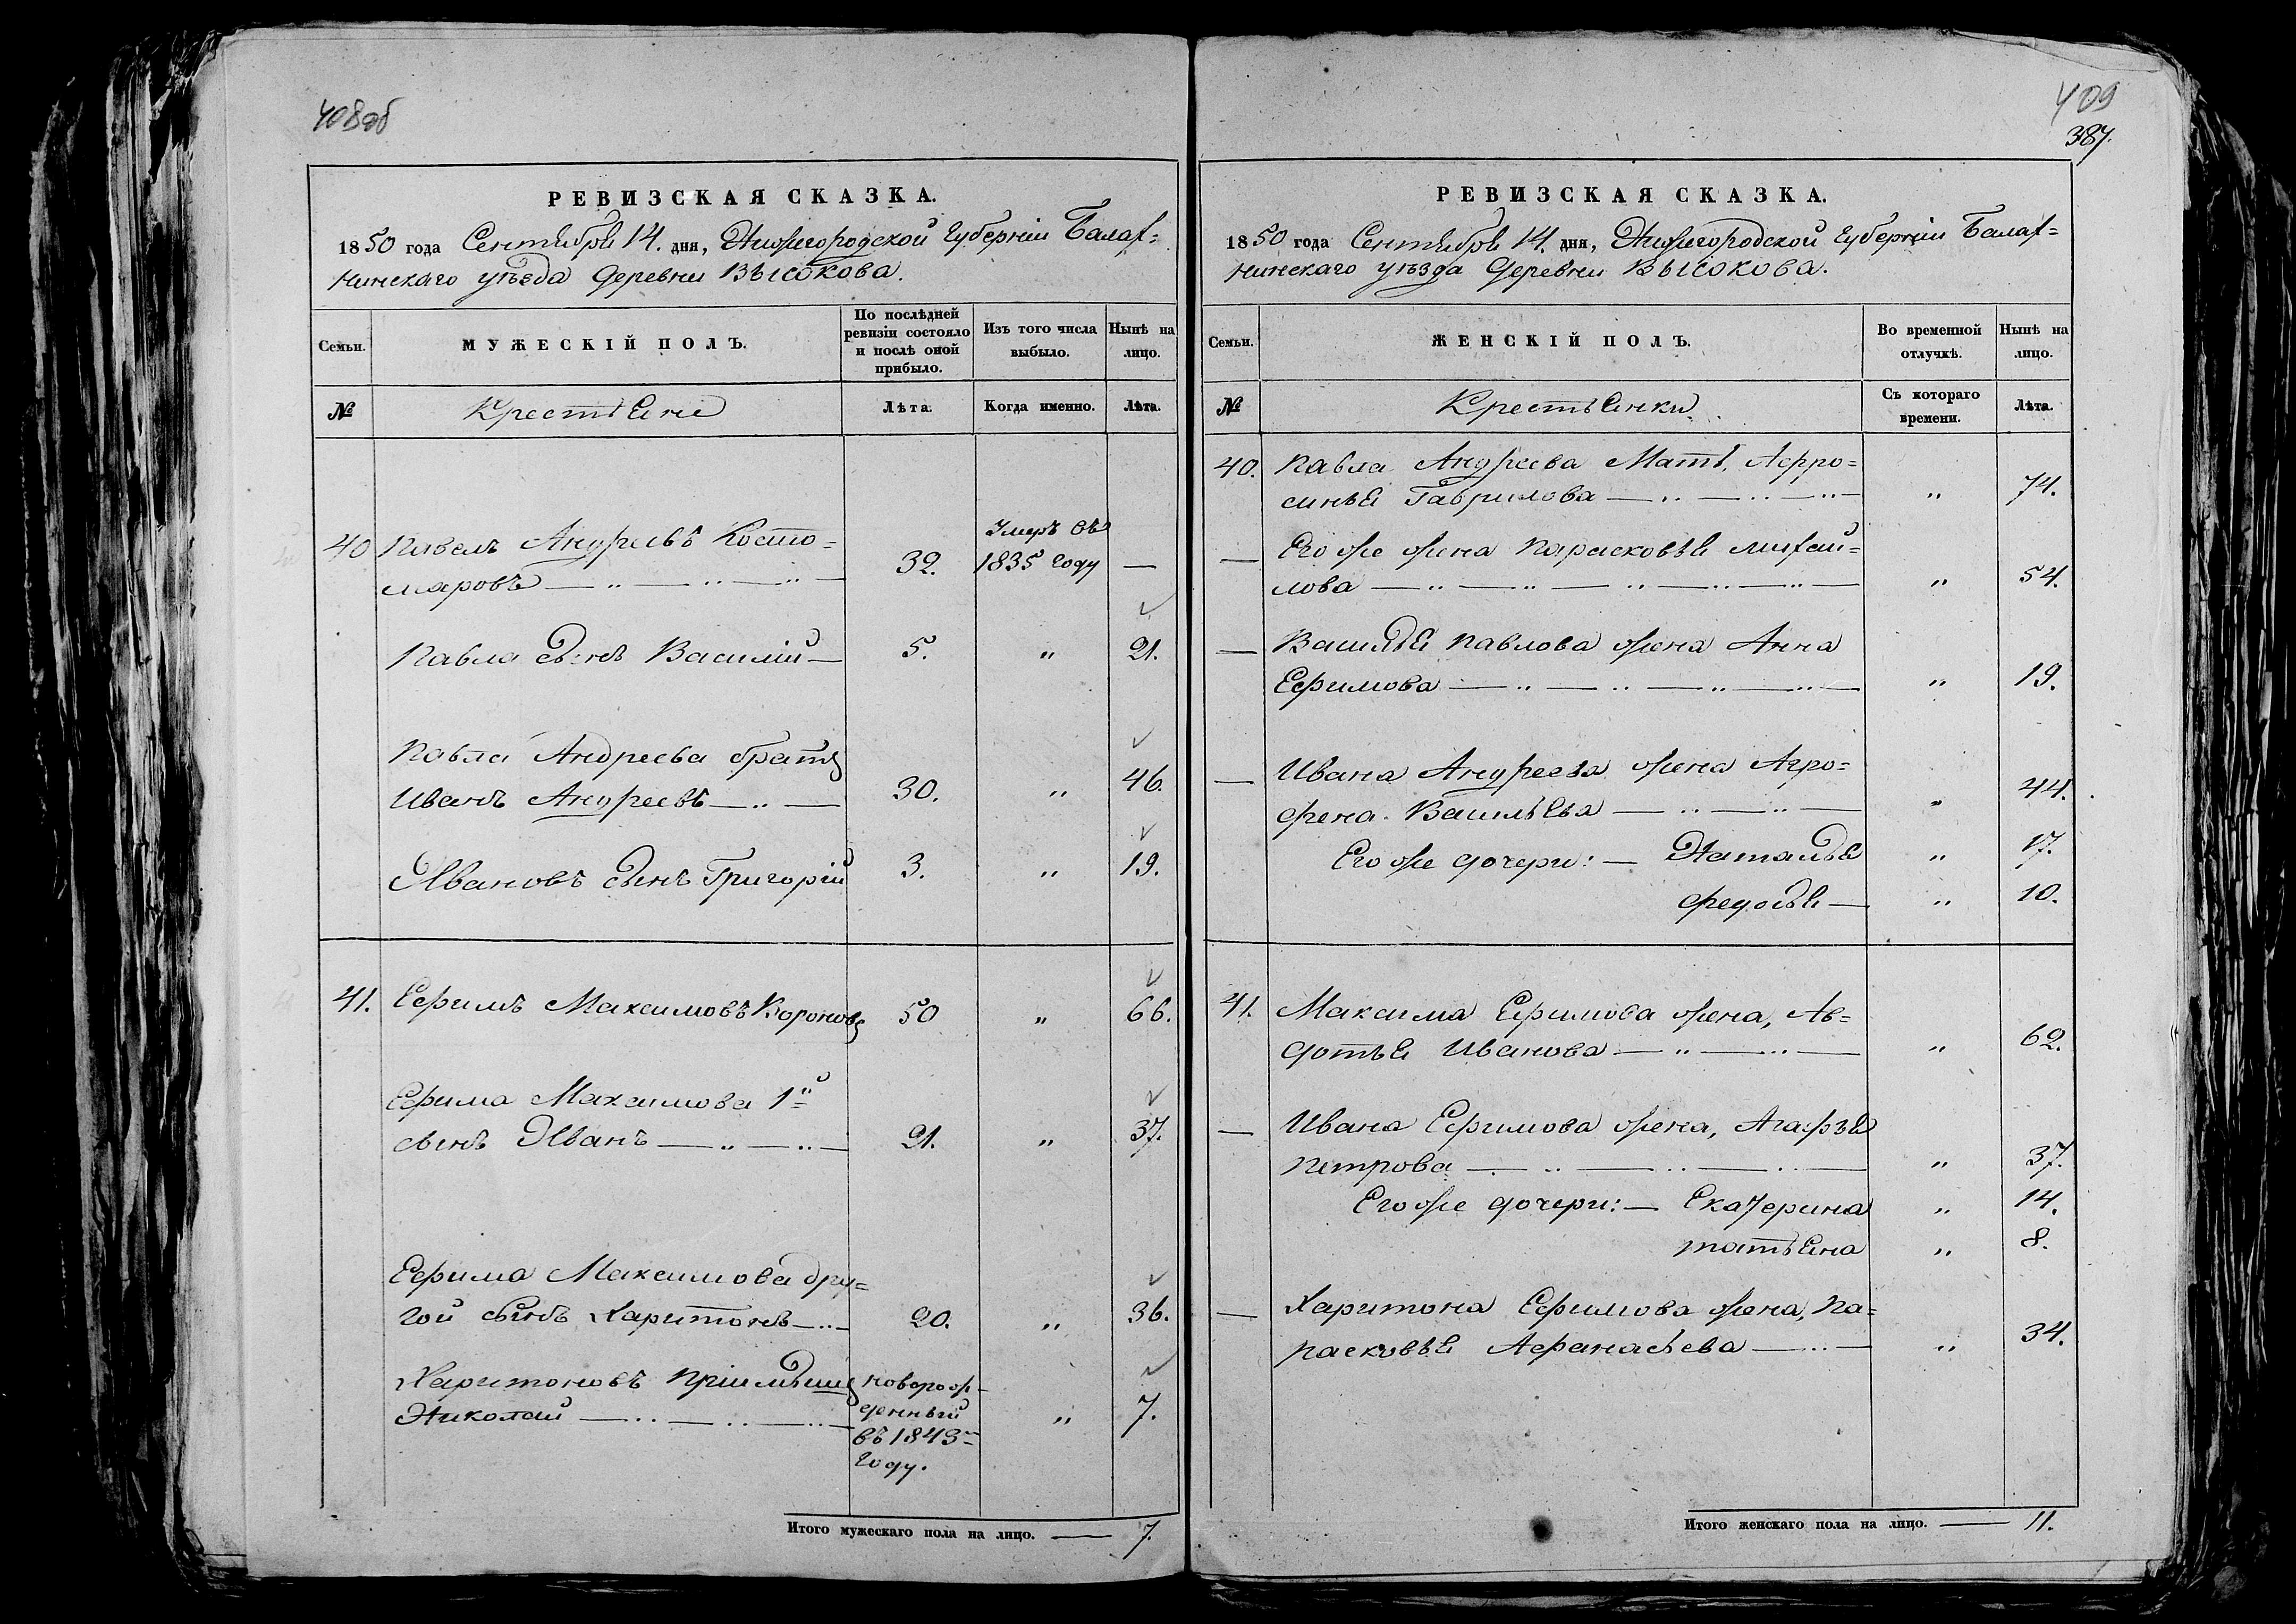 408об
РЕВИЗСКАЯ СКАЗКА.
1850 года Сентября 14. дня, Нижегородской Губерніи Балах=
нинскаго уѣзда Деревни Высокова.
Семьи.
МУЖЕСКІЙ ПОЛЪ.
По послѣдней ревизіи состояло и послѣ оной прибыло.
Изъ того числа выбыло.
Нынѣ на лицо.
№
Крестьяне
Лѣта.
Когда именно.
Лѣта.
40 Павелъ Андреевъ Косто=
маровъ — 32. Умеръ въ 1835 году —
Павла сынъ Василій — 5. " 21.
Павла Андреева братъ
Иванъ Андреевъ — 30. " 46.
Ивановъ сынъ Григорій 3. " 19.
41. Ефимъ Максимовъ Вороновъ 50 " 66.
Ефима Максимова 1й
сынъ Иванъ — 21. " 37.
Ефима Максимова дру=
гой сынъ Харитонъ — 20. " 36.
Харитоновъ пріимышъ новорож-
Николай — денный " 7.
въ 1843=
году.
Итого мужескаго пола на лицо. — 7.
409
387.
РЕВИЗСКАЯ СКАЗКА.
1850 года Сентября 14. дня, Нижегородской Губерніи Балах=
нинскаго уѣзда Деревни Высокова.
Семьи.
ЖЕНСКІЙ ПОЛЪ.
Во временной отлучкѣ.
Нынѣ на лицо.
№
Крестьянки
Съ котораго времени.
Лѣта.
40. Павла Андреева Мать, Афро=
синья Гаврилова — " 74.
— Его же жена Парасковья Михай=
лова — " 54.
— Василья Павлова жена Анна
Ефимова — " 19.
— Ивана Андреева жена Агро=
фена Васильева — " 44.
Его же дочери: — Наталья " 17.
Федосья — " 10.
41. Максима Ефимова жена, Ав=
дотья Иванова — " 62.
— Ивана Ефимова жена, Агафья
Петрова — " 37.
Его же дочери: — Екатерина " 14.
Татьяна " 8.
— Харитона Ефимова жена, Па=
расковья Афанасьева — " 34.
Итого женскаго пола на лицо. — 11.